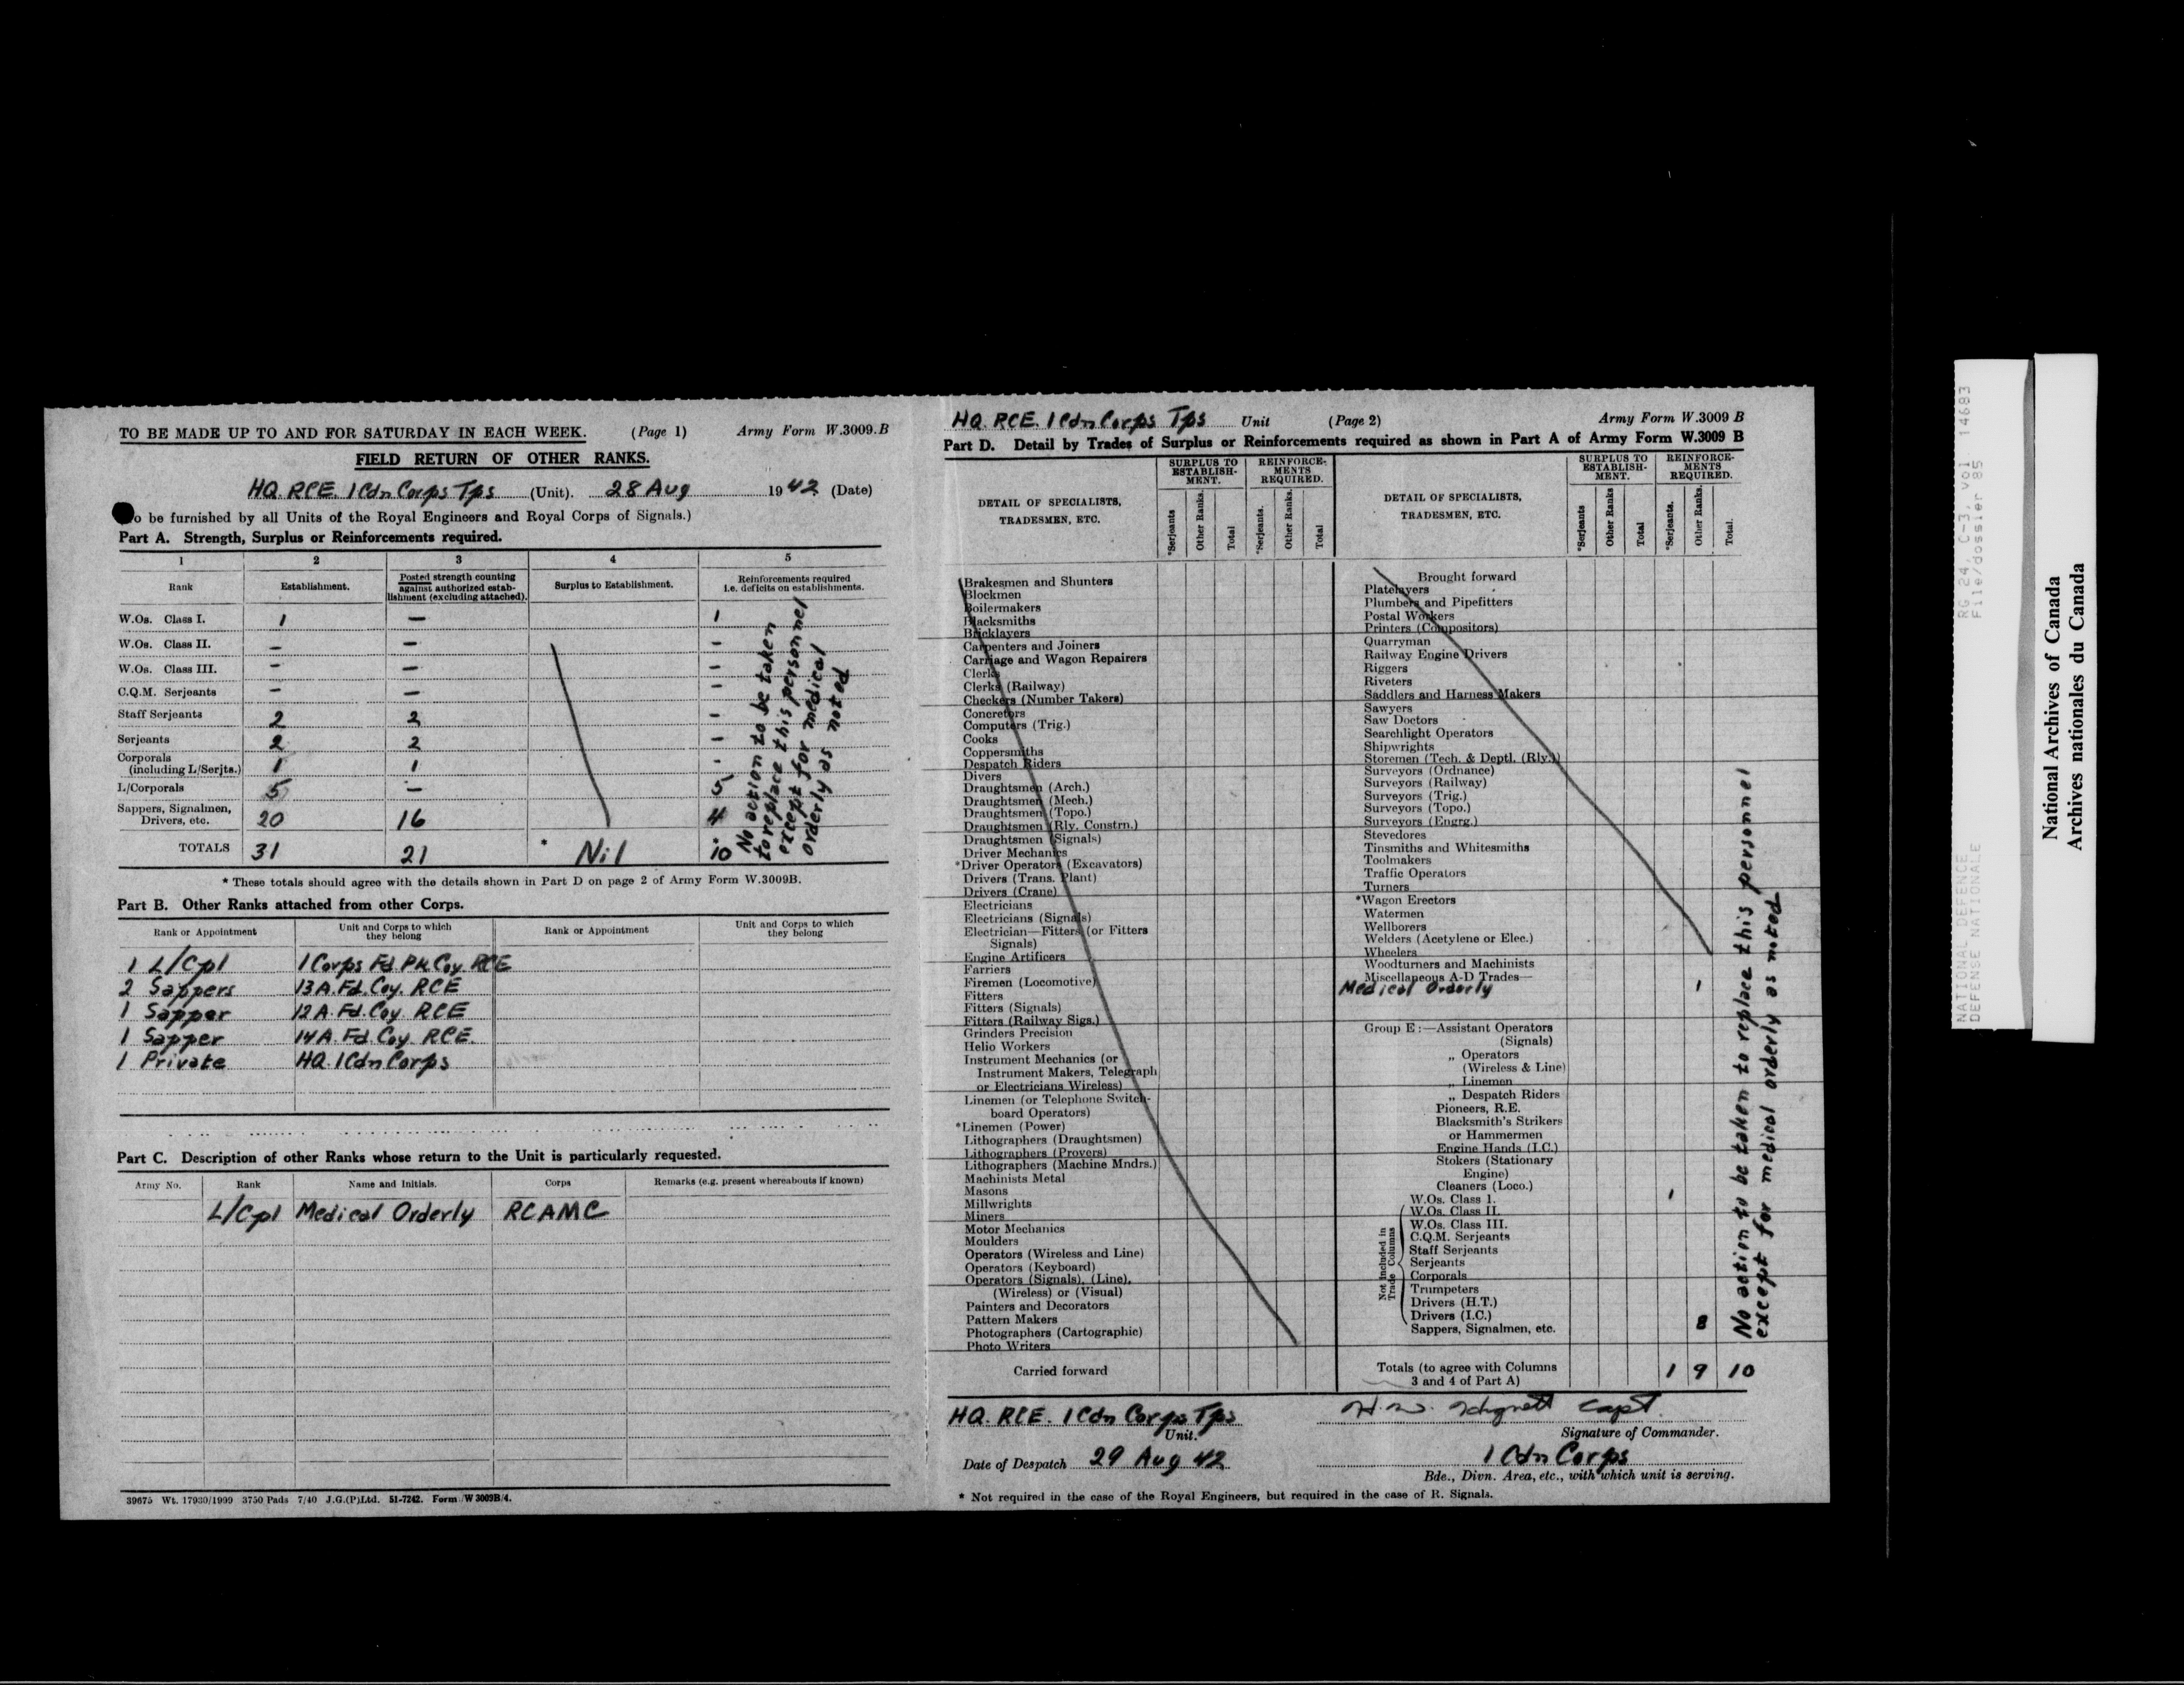 TO BE MADE UP TO AND FOR SATURDAY IN EACH WEEK. (Page 1) Army Form W.3009.B
FIELD RETURN OF OTHER RANKS.
HQ. RCE. 1 Cdn Corps Tps (Unit). 28 Aug 1942 (Date)
o be furnished by all Units of the Royal Engineers and Royal Corps of Signals.)
Part A. Strength, Surplus or Reinforcements required.
1 2 3 4 5
Rank Establishment. Posted strength counting against authorized estab-lishment (excluding attached). Surplus to Establishment. Reinforcements required i.e. deficits on establishments.
W.Os. Class I. 1 — 1
W.Os. Class II. — — —
W.Os. Class III. — — —
C.Q.M. Serjeants — — —
Staff Serjeants 2 2 —
Serjeants 2 2 —
Corporals
(including L/Serjts.) 1 1 -
L/Corporals 5 — 5
Sappers, Signalmen,
Drivers, etc. 20 16 4
TOTALS 31 21 * Nil * 10
No action to be taken
to replace this personnel
except for medical
orderly as noted
* These totals should agree with the details shown in Part D on page 2 of Army Form W.3009B.
Part B. Other Ranks attached from other Corps.
Rank or Appointment Unit and Corps to which they belong Rank or Appointment Unit and Corps to which they belong
1 L/Cpl 1 Corps Fd. Pk. Coy. RCE
2 Sappers 13 A. Fd. Coy. RCE
1 Sapper 12 A. Fd. Coy. RCE
1 Sapper 14 A. Fd. Coy. RCE.
1 Private HQ. 1 Cdn Corps
Part C. Description of other Ranks whose return to the Unit is particularly requested.
Army No. Rank Name and Initials. Corps Remarks (e.g. present whereabouts if known)
L/Cpl Medical Orderly RCAMC
39675 Wt. 17930/1999 3750 Pads 7/40 J.G.(P)Ltd. 51-7242. Form/W 3009B/4.
HQ. RCE. 1 Cdn Corps Tps Unit (Page 2) Army Form W.3009 B
Part D. Detail by Trades of Surplus or Reinforcements required as shown in Part A of Army Form W.3009 B
DETAIL OF SPECIALISTS, TRADESMEN, ETC. SURPLUS TO ESTABLISH-MENT. REINFORCE-MENTS REQUIRED.
*Serjeants Other Ranks. Total *Serjeants. Other Ranks. Total
Brakesmen and Shunters
Blockmen
Boilermakers
Blacksmiths
Bricklayers
Carpenters and Joiners
Carriage and Wagon Repairers
Clerks
Clerks (Railway)
Checkers (Number Takers)
Concretors
Computers (Trig.)
Cooks
Coppersmiths
Despatch Riders
Divers
Draughtsmen (Arch.)
Draughtsmen (Mech.)
Draughtsmen (Topo.)
Draughtsmen (Rly. Constrn.)
Draughtsmen (Signals)
Driver Mechanics
*Driver Operators (Excavators)
Drivers (Trans. Plant)
Drivers (Crane)
Electricians
Electricians (Signals)
Electrician—Fitters (or Fitters
Signals)
Engine Artificers
Farriers
Firemen (Locomotive)
Fitters
Fitters (Signals)
Fitters (Railway Sigs.)
Grinders Precision
Helio Workers
Instrument Mechanics (or
Instrument Makers, Telegraph
or Electricians Wireless)
Linemen (or Telephone Switch-
board Operators)
*Linemen (Power)
Lithographers (Draughtsmen)
Lithographers (Provers)
Lithographers (Machine Mndrs.)
Machinists Metal
Masons
Millwrights
Miners
Motor Mechanics
Moulders
Operators (Wireless and Line)
Operators (Keyboard)
Operators (Signals), (Line),
(Wireless) or (Visual)
Painters and Decorators
Pattern Makers
Photographers (Cartographic)
Photo Writers
Carried forward
DETAIL OF SPECIALISTS, TRADESMEN, ETC. SURPLUS TO ESTABLISH-MENT. REINFORCE-MENTS REQUIRED.
*Serjeants Other Ranks Total *Serjeants. Other Ranks. Total.
Brought forward
Platelayers
Plumbers and Pipefitters
Postal Workers
Printers (Compositors)
Quarryman
Railway Engine Drivers
Riggers
Riveters
Saddlers and Harness Makers
Sawyers
Saw Doctors
Searchlight Operators
Shipwrights
Storemen (Tech. & Deptl. (Rly.))
Surveyors (Ordnance)
Surveyors (Railway)
Surveyors (Trig.)
Surveyors (Topo.)
Surveyors (Engrg.)
Stevedores
Tinsmiths and Whitesmiths
Toolmakers
Traffic Operators
Turners
*Wagon Erectors
Watermen
Wellborers
Welders (Acetylene or Elec.)
Wheelers
Woodturners and Machinists
Miscellaneous A-D Trades—
Medical Orderly 1
Group E :—Assistant Operators
(Signals)
„ Operators
(Wireless & Line)
„ Linemen
„ Despatch Riders
Pioneers, R.E.
Blacksmith's Strikers
or Hammermen
Engine Hands (I.C.)
Stokers (Stationary
Engine)
Cleaners (Loco.)
Not included in Trade Columns
W.Os. Class I. 1
W.Os. Class II.
W.Os. Class III.
C.Q.M. Serjeants
Staff Serjeants
Serjeants
Corporals
Trumpeters
Drivers (H.T.)
Drivers (I.C.)
Sappers, Signalmen, etc. 8
Totals (to agree with Columns
3 and 4 of Part A) 1 9 10
No action to be taken to replace this personnel
except for medical orderly as noted
HQ. RCE. 1 Cdn Corps Tps
Unit.
Date of Despatch 29 Aug 42
H. W. Capt.
Signature of Commander.
1 Cdn Corps
Bde., Divn. Area, etc., with which unit is serving.
* Not required in the case of the Royal Engineers, but required in the case of R. Signals.
NATIONAL DEFENCE RG 24, C-3, vol 14683
DEFENSE NATIONALE File/dossier 85
National Archives of Canada
Archives nationales du Canada